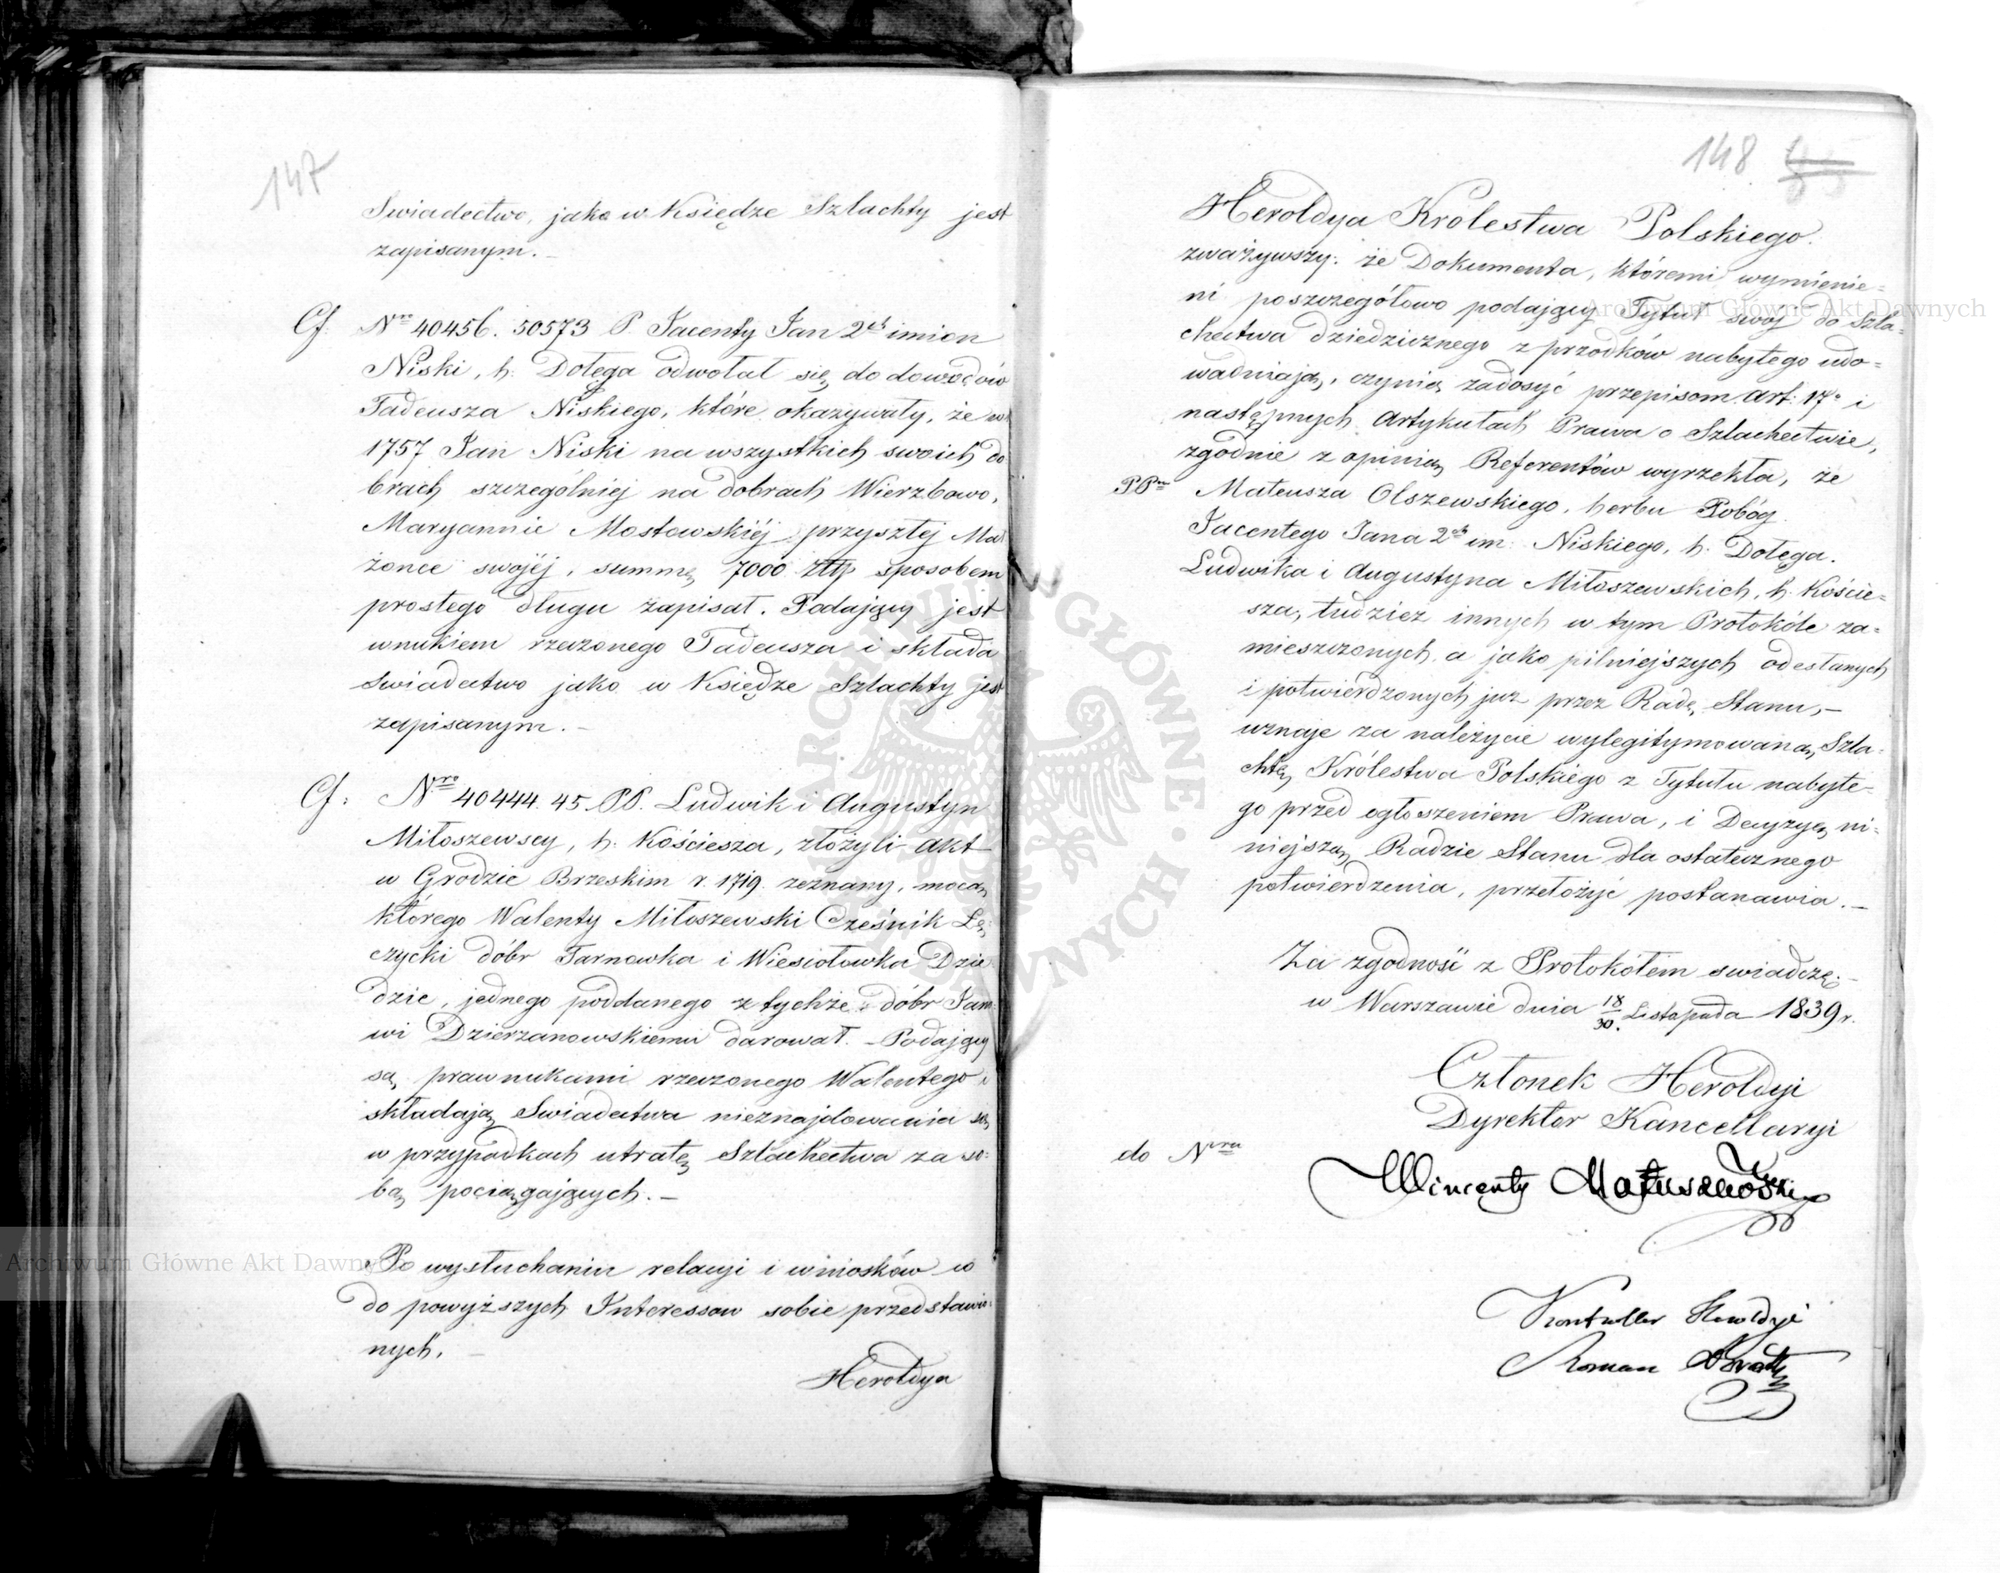 147
Swiadectwo, jako w Księdze Szlachty jest
zapisanym. –
Cf. Nro 40456. 50573 P. Jacenty Jan 2ch imion
Niski, h. Dołęga odwołał się do dowodów
Tadeusza Niskiego, które okazywały, że w
1757 Jan Niski na wszystkich swoich do
brach szczególniej na dobrach Wierzbowo,
Maryannie Mostowskiéj przyszłej Mał
żonce swojéj, summę 7000 złtp sposobem
prostego długu zapisał. Podający jest
wnukiem rzeczonego Tadeusza i składa
Swiadectwo jako w Księdze Szlachty jest
zapisanym. –
Cf: Nro 40444. 45. PP. Ludwik i Augustyn
Miłoszewscy, h. Kościesza, złożyli akt
w Grodzie Brzeskim r. 1719. zeznany, mocą
którego Walenty Miłoszewski Cześnik Łę
czycki dóbr Tarnowka i Wiesiołowka Dzie
dzic, jednego poddanego z tychże dóbr Jano
wi Dzierzanowskiemu darował. – Podający
są prawnukami rzeczonego Walentego i
składają Swiadectwa nieznajdowania się
w przypadkach utratę Szlachectwa za so=
bą pociągających. –
Po wysłuchaniu relacyi i wniosków co
do powyższych Interessow sobie przedstawio=
nych,
Heroldya
148
Heroldya Królestwa Polskiego.
zważywszy: że Dokumenta, któremi wymienie=
ni poszczegółowo podający Tytuł swój do Szla=
chectwa dziedzicznego z przodków nabytego udo=
wadniają, czynią zadosyć przepisom Art: 17o i
następnych Artykułach Prawa o Szlachectwie,
zgodnie z opinią Referentów wyrzekła, że
PPn Mateusza Olszewskiego, herbu Pobóg.
Jacentego Jana 2ch im: Niskiego, h. Dołęga.
Ludwika i Augustyna Miłoszewskich, h. Koście=
sza, tudzież innych w tym Protokóle za=
mieszczonych, a jako pilniejszych odesłanych
i potwierdzonych już przez Radę Stanu, –
uznaje za należycie wylegitymowaną Szla=
chtę Królestwa Polskiego z Tytułu nabyte=
go przed ogłoszeniem Prawa, i Decyzyę ni=
niejszą Radzie Stanu dla ostatecznego
potwierdzenia, przełożyć postanawia. –
Za zgodność z Protokółem swiadczę. –
w Warszawie dnia 18/30. Listopada 1839 r.
Członek Heroldyi
Dyrektor Kancellaryi
do Nru
Wincenty Matuszewski
Kontroller Heroldyi
Roman
Archiwum Główne Akt Dawnych
Archiwum Główne Akt Dawnych
ARCHIWUM GŁÓWNE AKT DAWNYCH